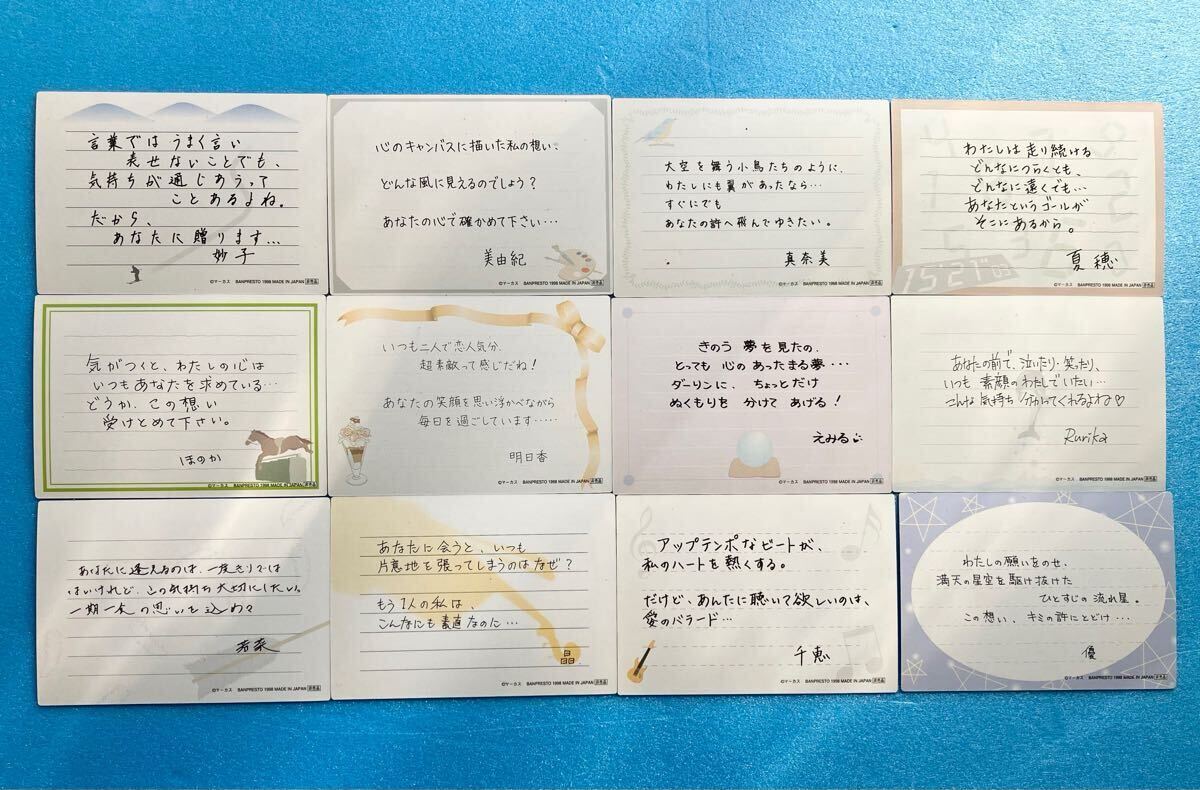 言葉では うまく言い
表せないことでも、
気持ちが通じあうって
ことあるよね。
だから、
あなたに贈ります…
妙子
©マーカス BANPRESTO 1998 MADE IN JAPAN 非売品
心のキャンバスに描いた私の想い、
どんな風に見えるのでしょう?
あなたの心で確かめて下さい…
美由紀
©マーカス BANPRESTO 1998 MADE IN JAPAN 非売品
大空を舞う小鳥たちのように、
わたしにも翼があったなら…
すぐにでも
あなたの許へ飛んでゆきたい。
真奈美
©マーカス BANPRESTO 1998 MADE IN JAPAN 非売品
わたしは走り続ける
どんなにつらくとも、
どんなに遠くでも…
あなたというゴールが
そこにあるから。
夏穂
15'27"
©マーカス BANPRESTO 1998 MADE IN JAPAN 非売品
気がつくと、わたしの心は
いつもあなたを求めている…
どうか、この想い
受けとめて下さい。
ほのか
©マーカス BANPRESTO 1998 MADE IN JAPAN 非売品
いつも二人で恋人気分、
超素敵って感じだね!
あなたの笑顔を思い浮かべながら
毎日を過ごしています……
明日香
©マーカス BANPRESTO 1998 MADE IN JAPAN 非売品
きのう 夢を見たの、
とっても 心のあったまる夢・・・
ダーリンに、ちょっとだけ
ぬくもりを 分けて あげる!
えみる
©マーカス BANPRESTO 1998 MADE IN JAPAN 非売品
あなたの前で、泣いたり・笑ったり、
いつも 素顔のわたしでいたい…
こんな気持ち 分かってくれるよね♡
Rurika
©マーカス BANPRESTO 1998 MADE IN JAPAN 非売品
あなたに逢えるのは、一度きりでは
ないけれど、この気持ち大切にしたい。
一期一会の思いを込めて
若菜
©マーカス BANPRESTO 1998 MADE IN JAPAN 非売品
あなたに会うと、いつも
片意地を張ってしまうのはなぜ?
もう1人の私は、
こんなにも素直なのに…
©マーカス BANPRESTO 1998 MADE IN JAPAN 非売品
アップテンポなビートが、
私のハートを熱くする。
だけど、あんたに聴いて欲しいのは、
愛のバラード…
千恵
©マーカス BANPRESTO 1998 MADE IN JAPAN 非売品
わたしの願いをのせ、
満天の星空を駆け抜けた
ひとすじの流れ星。
この想い、キミの許にとどけ…
優
©マーカス BANPRESTO 1998 MADE IN JAPAN 非売品